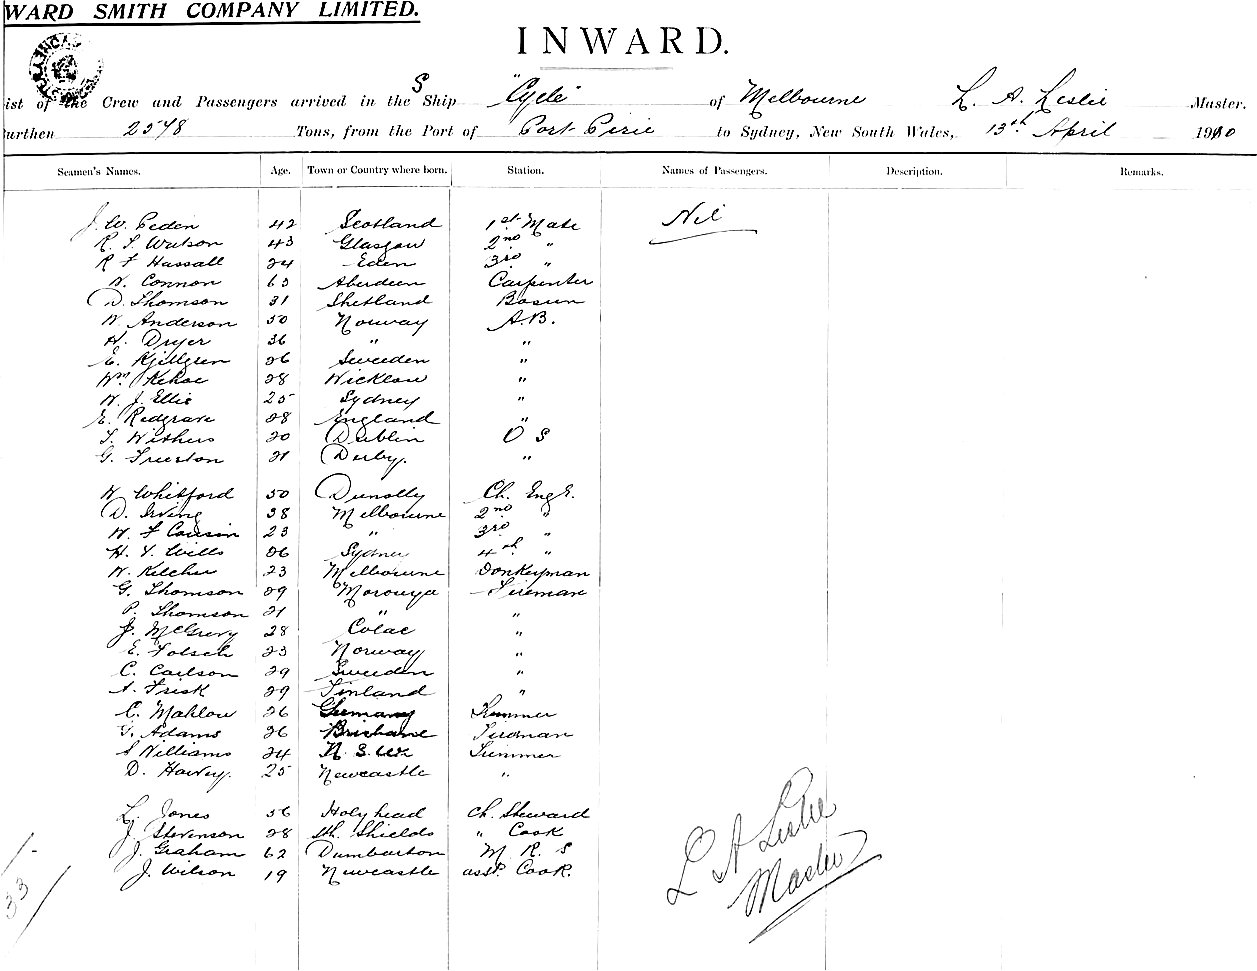 WARD SMITH COMPANY LIMITED.
INWARD.
ist of the Crew and Passengers arrived in the S Ship "Cycle" of Melbourne L. A. Leslie Master.
urthen 2578 Tons, from the Port of Port Pirie to Sydney, New South Wales, 13th April 1910
Seamen's Names. Age. Town or Country where born. Station. Names of Passengers. Description. Remarks.
J. W. Peden 42 Scotland 1st Mate Nil
R. S. Watson 43 Glasgow 2nd "
R F Hassall 24 Eden 3rd "
W. Connon 63 Aberdeen Carpenter
D. Thomson 31 Shetland Bosun
W. Anderson 50 Norway A.B.
H. Dryer 36 " "
E. Kjellgren 26 Sweden "
Wm Kehoe 28 Wicklow "
W. J. Ellis 25 Sydney "
E. Redgrave 28 England "
T. Withers 20 Dublin O S
G. Freeston 21 Derby. "
W. Whitford 50 Dunolly Ch. Eng E.
D. Irving 38 Melbourne 2nd "
W. F Cousin 23 " 3rd "
H. V. Wills 26 Sydney 4th "
W. Kelcher 23 Melbourne Donkeyman
G. Thomson 29 Moruya Fireman
P. Thomson 21 " "
J. 28 Colac "
E. 23 Norway "
C. Carlson 29 Sweden "
A. Frisk 29 Finland "
C. Mahlow 26 Germany Trimmer
G. Adams 26 Brisbane Fireman
S Williams 24 N. S. W Trimmer
D. Harvey. 25 Newcastle "
L. Jones 56 Holyhead Ch. Steward
J. Stevenson 28 Sth. Shields " Cook
J. Graham 62 Dumbarton M. R. S
J. Wilson 19 Newcastle asst. Cook.
L A Leslie
Master
33